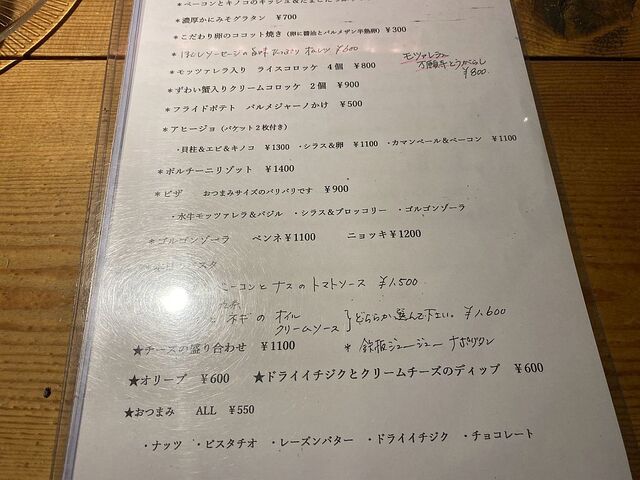 ＊ベーコンとキノコのキッシュ
＊濃厚かにみそグラタン　¥700
＊こだわり卵のココット焼き（卵に醤油とパルメザン半熟卵）¥300
オムレツ ¥600
＊モッツァレラ入り　ライスコロッケ　4個　¥800
モッツァレラと
万願寺とうがらし
¥800
＊ずわい蟹入りクリームコロッケ　2個　¥900
＊フライドポテト　パルメジャーノかけ　¥500
＊アヒージョ（バケット2枚付き）
・貝柱&エビ&キノコ　¥1300　・シラス&卵　¥1100　・カマンベール&ベーコン　¥1100
＊ポルチーニリゾット　¥1400
＊ピザ　おつまみサイズのパリパリです　¥900
・水牛モッツァレラ&バジル　・シラス&ブロッコリー　・ゴルゴンゾーラ
＊ゴルゴンゾーラ　ペンネ¥1100　ニョッキ¥1200
スタ
ーコンと ナスの トマトソース　¥1,500
と ネギの オイル
クリームソース } どちらか選んで下さい。　¥1,600
★チーズの盛り合わせ　¥1100
＊ 鉄板ジュージュー ナポリタン
★オリーブ　¥600　★ドライイチジクとクリームチーズのディップ　¥600
★おつまみ　ALL　¥550
・ナッツ　・ピスタチオ　・レーズンバター　・ドライイチジク　・チョコレート